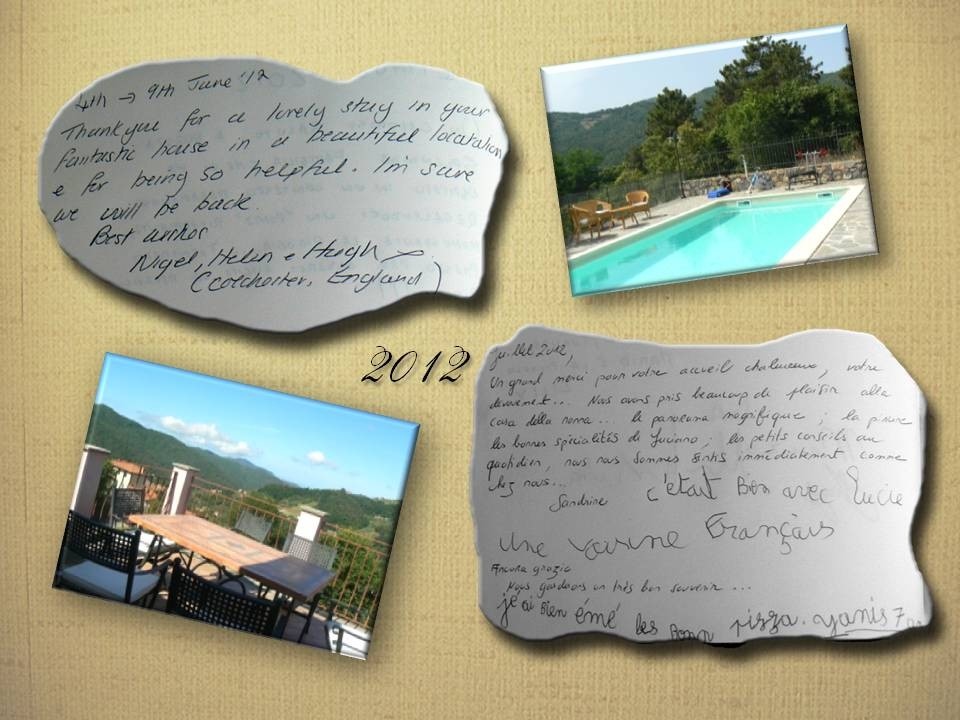 4th → 9th June '12
Thankyou for a lovely stay in your
fantastic house in a beautiful locatation
e for being so helpful. I'm sure
we will be back.
Best wishes
Nigel, Helen e Hugh x.
(Colchester, England)
2012
Juillet 2012,
Un grand merci pour votre accueil chaleureux, votre
dévouement... Nous avons pris beaucoup de plaisir alla
casa della nonna... le panorama magnifique ; la piscine
les bonnes spécialités de Luciano ; les petits conseils au
quotidien, nous nous sommes sentis immédiatement comme
chez nous...
Sandrine c'était Bon avec Lucie
Une Français
Ancora grazie
Nous gardons un très bon souvenir...
je ai Bien émé les Bonn pizza. yanis 7